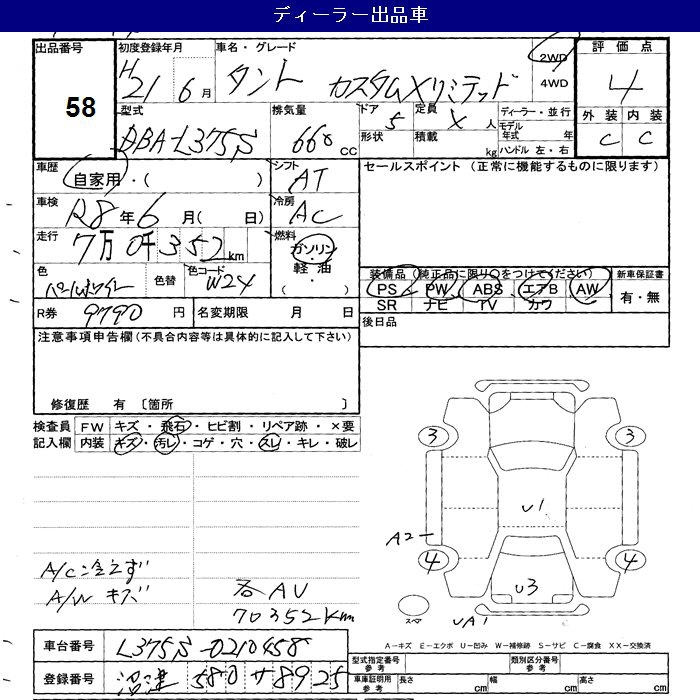 ディーラー出品車
出品番号 58
初度登録年月 H21 6月
車名・グレード タント カスタムXリミテッド
2WD
4WD
評価点 4
外装 内装
C C
型式 DBA-L375S
排気量 660 CC
ドア 5
形状
定員 X 人
積載 kg
ディーラー・並行
モデル年式 年
ハンドル 左・右
車歴 自家用・( )
シフト AT
セールスポイント (正常に機能するものに限ります)
車検 R8年6月( 日)
冷房 AC
走行 7万0千352km
燃料 ガソリン・軽油・( )
色 パールホワイト 色替 色コード W24
装備品 (純正品に限り○をつけてください)
新車保証書 有・無
PS PW ABS エアB AW
SR ナビ TV カワ
R券 9790円 名変期限 月 日
後日品
注意事項申告欄(不具合内容等は具体的に記入して下さい)
修復歴 有 〔箇所 〕
検査員記入欄
FW キズ・飛石・ヒビ割・リペア跡・×要
内装 キズ・汚れ・コゲ・穴・スレ・キレ・破レ
3 3
U1
A2
4 4
U3
UA1
A/C冷えず
A/W キズ
各AU
70352km
車台番号 L375S-0210458
登録番号 沼津 580 サ 8925
A-キズ E-エクボ U-凹み W-補修跡 S-サビ C-腐食 XX-交換済
型式指定番号 参考
類別区分番号 参考
車庫証明用 参考
長さ cm 幅 cm 高さ cm